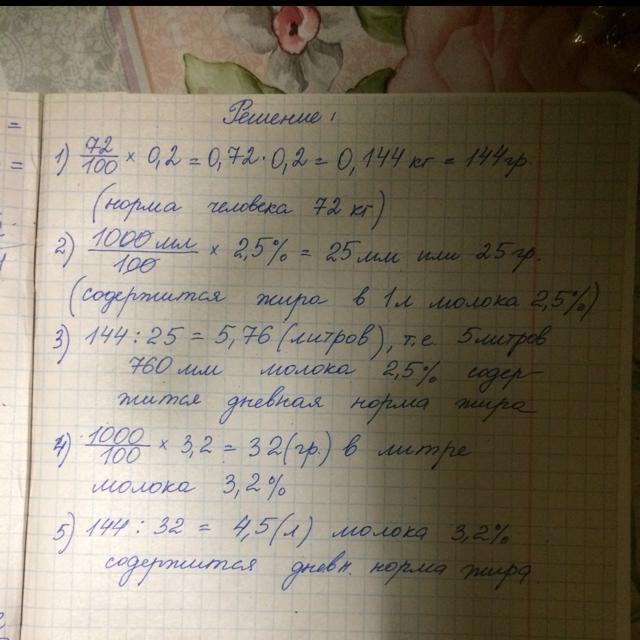 Решение:
1) 72/100 × 0,2 = 0,72 · 0,2 = 0,144 кг = 144гр.
(норма человека 72 кг)
2) 1000 мл/100 × 2,5% = 25 мм или 25 гр.
(содержится жира в 1л молока 2,5%)
3) 144 : 25 = 5,76 (литров), т.е 5литров
760 мм молока 2,5% содер-
жится дневная норма жира
4) 1000/100 × 3,2 = 32 (гр.) в литре
молока 3,2%
5) 144 : 32 = 4,5 (л) молока 3,2%
содержится дневн. норма жира